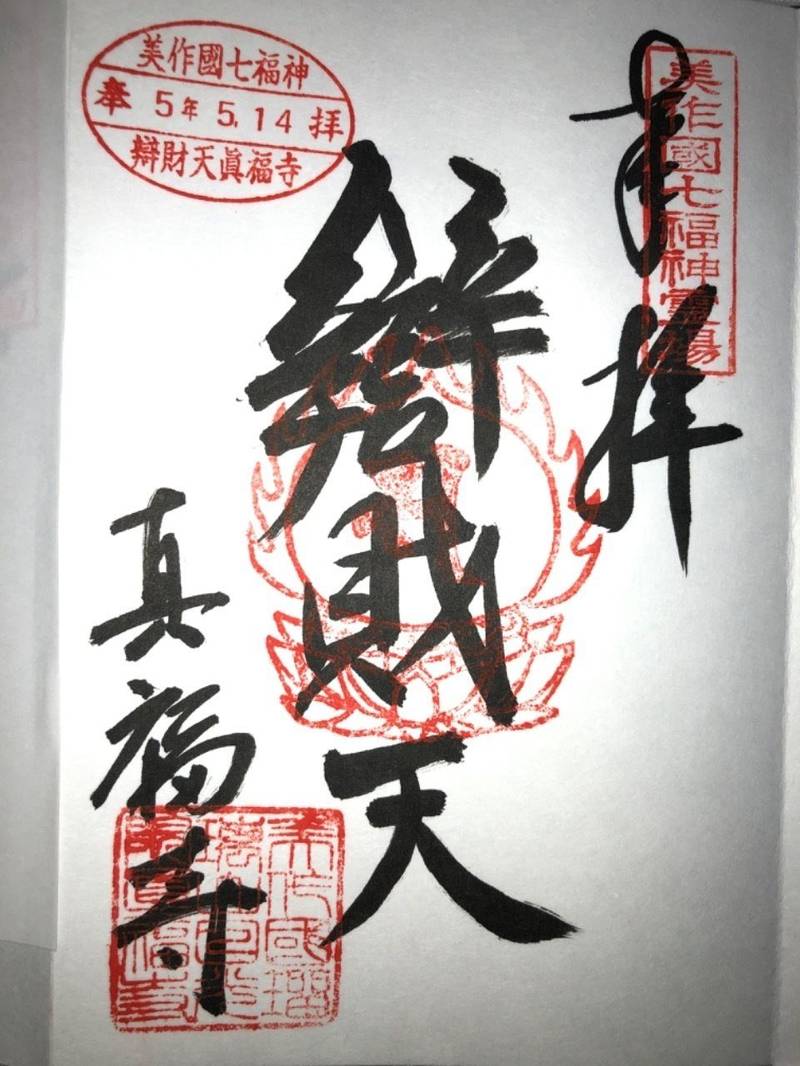 奉拝
美作國七福神霊場
辯財天
真福寺
美作國七福神
奉 5年 5.14 拝
辯財天眞福寺